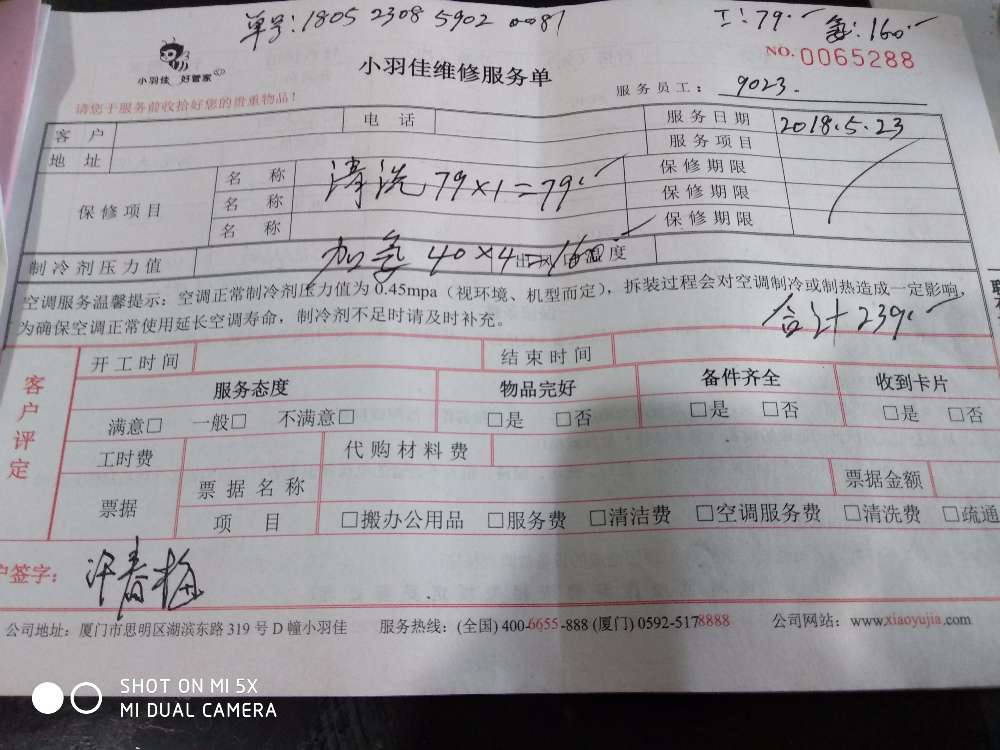 单号:1805 2308 5902 0081
工:79.- 氢:160.-
小羽佳 好管家
小羽佳维修服务单
NO. 0065288
请您于服务前收拾好您的贵重物品!
服务员工: 9023.
客 户 电 话 服务日期 2018.5.23
地 址 服务项目
保修项目 名 称 清洗 79×1=79.- 保修期限
名 称 保修期限
名 称 保修期限
制冷剂压力值 加氢 40×4=160 度
空调服务温馨提示:空调正常制冷剂压力值为 0.45mpa(视环境、机型而定),拆装过程会对空调制冷或制热造成一定影响,
为确保空调正常使用延长空调寿命,制冷剂不足时请及时补充。
合计 239.-
客户评定
开工时间 结束时间
服务态度 物品完好 备件齐全 收到卡片
满意□ 一般□ 不满意□ □是 □否 □是 □否 □是 □否
工时费 代购材料费
票据 票据名称 票据金额
项 目 □搬办公用品 □服务费 □清洁费 □空调服务费 □清洗费 □疏通
户签字: 许春梅
公司地址:厦门市思明区湖滨东路 319 号 D 幢小羽佳 服务热线:(全国) 400-6655-888 (厦门) 0592-5178888 公司网站:www.xiaoyujia.com
SHOT ON MI 5X
MI DUAL CAMERA